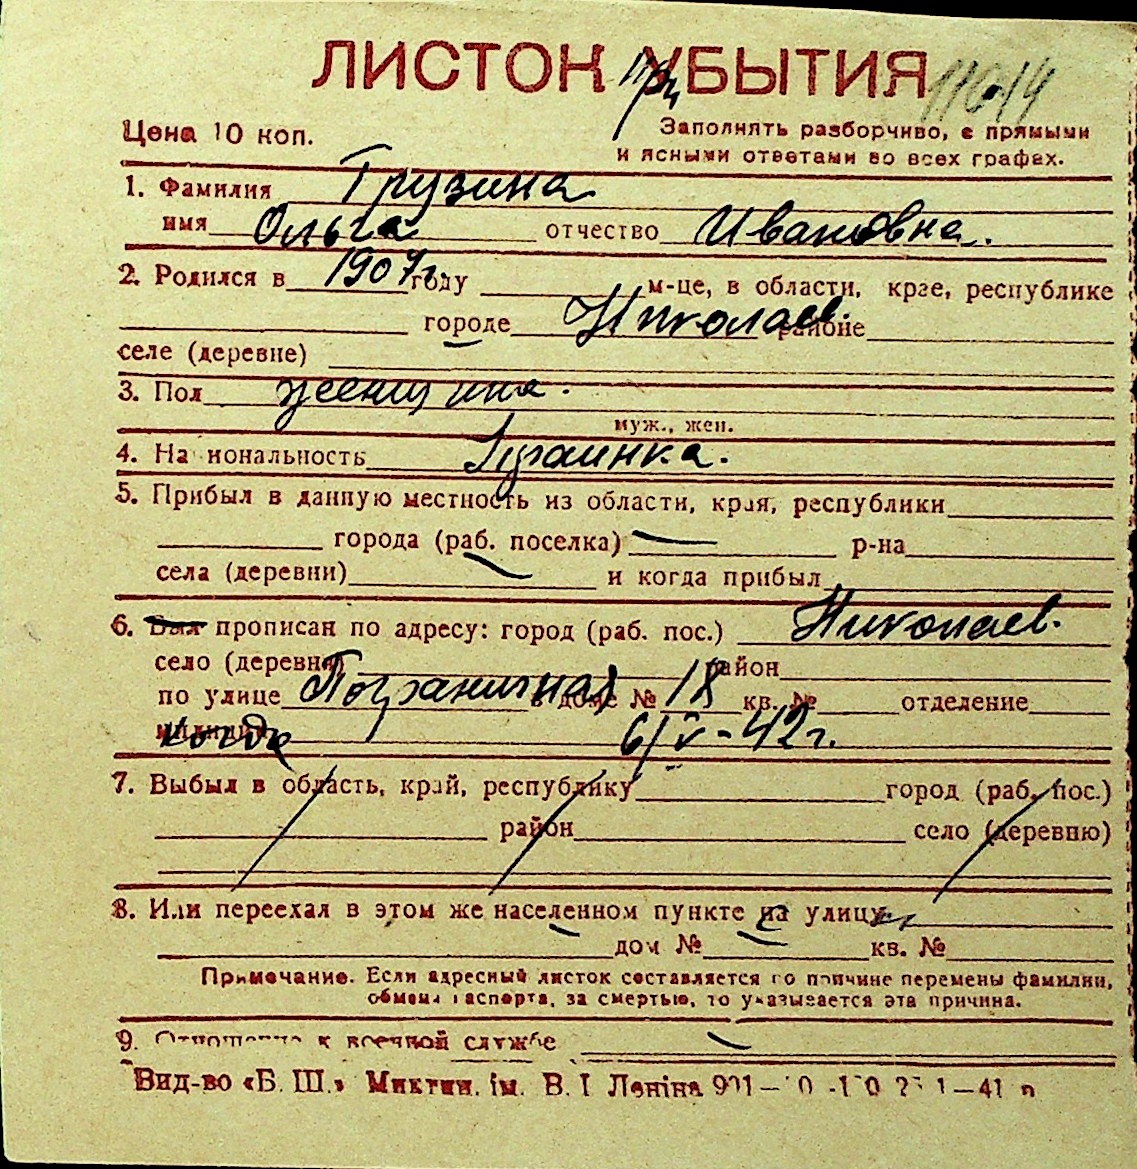 ЛИСТОК УБЫТИЯ 11014
Цена 10 коп.
Заполнять разборчиво, с прямыми
и ясными ответами во всех графах.
1. Фамилия Грузина
имя Ольга отчество Ивановна.
2. Родился в 1907г. году м-це, в области, крае, республике
городе Николаев районе
селе (деревне)
3. Пол женщина.
муж., жен.
4. Национальность Украинка.
5. Прибыл в данную местность из области, края, республики
города (раб. поселка) — р-на
села (деревни) — и когда прибыл
6. Был прописан по адресу: город (раб. пос.) Николаев.
село (деревня) район
по улице Пограничная в доме № 18 кв. № отделение
милиции когда 6/V-42г.
7. Выбыл в область, край, республику город (раб. пос.)
район село (деревню)
8. Или переехал в этом же населенном пункте на улицу
дом № — кв. №
Примечание. Если адресный листок составляется по причине перемены фамилии,
обмена паспорта, за смертью, то указывается эта причина.
9. Отношение к военной службе —
Вид-во «Б. Ш.» Миктип. ім. В. І Леніна